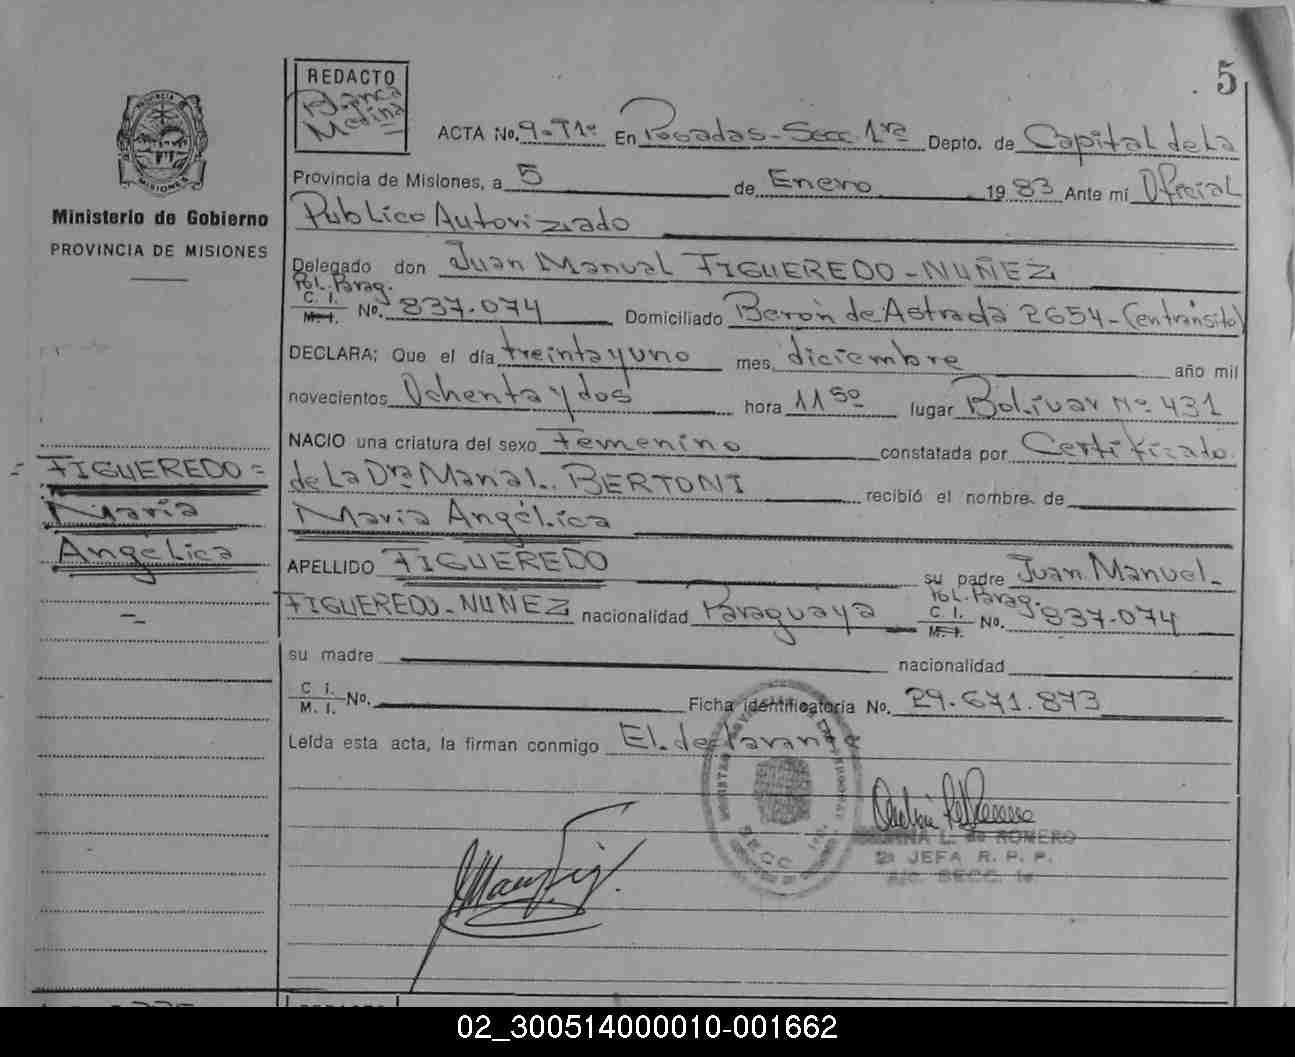 5
REDACTO
Blanca
Medina
ACTA No. 9-T1º En Posadas-Secc 1ra Depto. de Capital de La
Provincia de Misiones, a 5 de Enero 1983 Ante mí Oficial
Publico Autorizado
Delegado don Juan Manuel FIGUEREDO-NUÑEZ
Pol. Parag.
C. I.
M. I. No. 837.074 Domiciliado Beron de Astrada 2654-(en tránsito)
DECLARA; Que el día treinta y uno mes, diciembre año mil
novecientos Ochenta y dos hora 11 50 lugar Bolívar Nº 431
NACIO una criatura del sexo Femenino constatada por Certifizado
de La Dra Maria L. BERTONI recibió el nombre de
María Angélica
APELLIDO FIGUEREDO su padre Juan Manuel
FIGUEREDO-NUÑEZ nacionalidad Paraguaya Pol. Parag. C. I. M. I. No. 837-074
su madre nacionalidad
C I.
M. I. No. Ficha identificatoria No. 29.671.873
Leída esta acta, la firman conmigo El declarante
PROVINCIA DE
MISIONES
Ministerio de Gobierno
PROVINCIA DE MISIONES
= FIGUEREDO =
María
Angélica
SECC
L. de ROMERO
2a JEFA R. P. P.
A/C. SECC. 1a
02_300514000010-001662